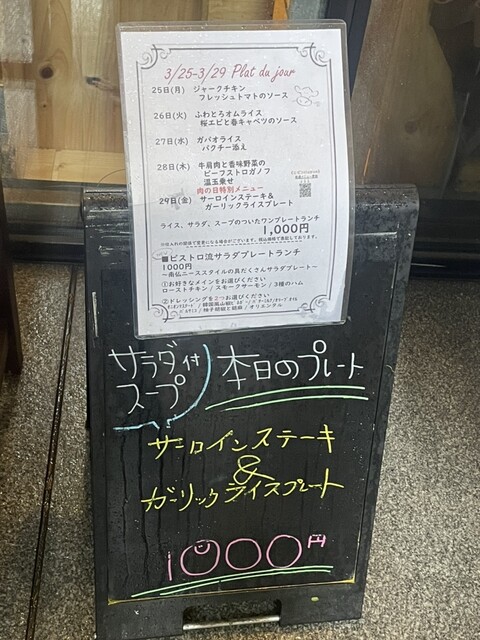 3/25-3/29 Plat du jour
25日(月) ジャークチキン
フレッシュトマトのソース
26日(火) ふわとろオムライス
桜エビと春キャベツのソース
27日(水) ガパオライス
パクチー添え
28日(木) 牛肩肉と香味野菜の
ビーフストロガノフ
温玉乗せ
肉の日特別メニュー
29日(金) サーロインステーキ&
ガーリックライスプレート
ライス、サラダ、スープのついたワンプレートランチ
1,000円
■ビストロ流サラダプレートランチ
1000円
~南仏ニーススタイルの具だくさんサラダプレート~
①お好きなメインをお選びください
ローストチキン / スモークサーモン / 3種のハム
②ドレッシングを2つお選びください
サラダ付
スープ
本日のプレート
サーロインステーキ
&
ガーリックライスプレート
1000円